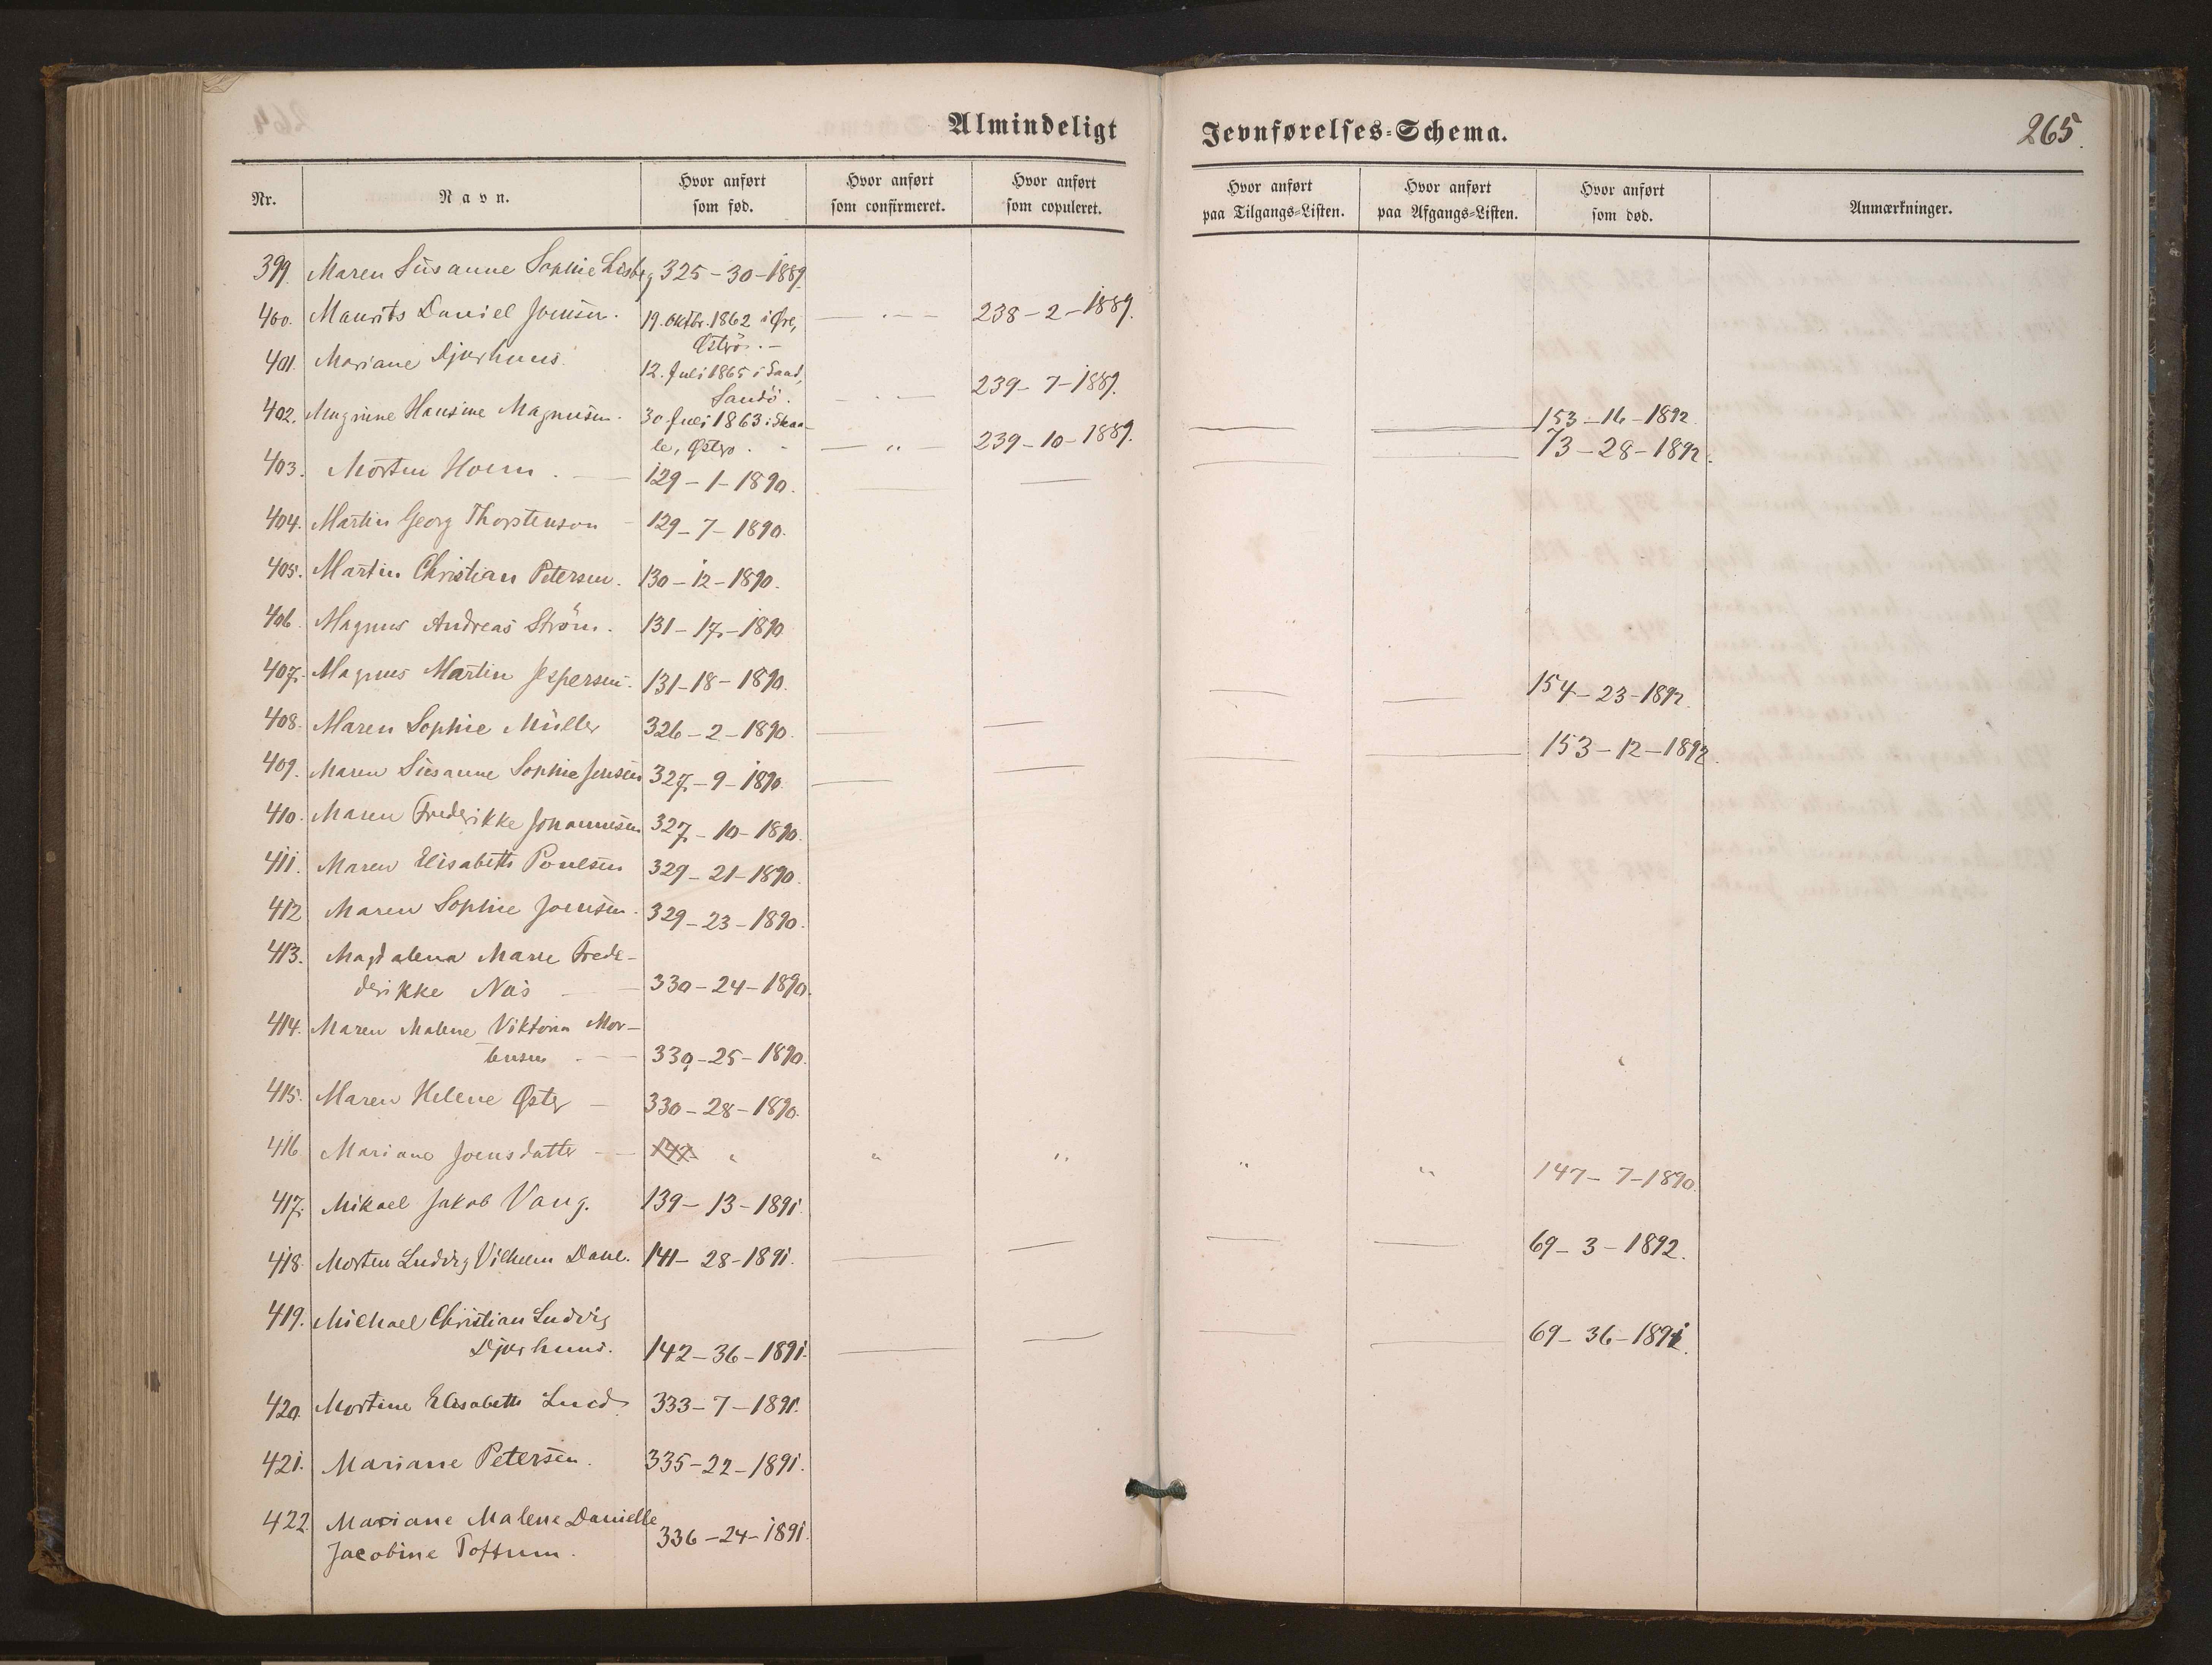 Almindeligt Jevnførelses-Schema. 265.
Nr. Navn. Hvor anført som fød. Hvor anført som confirmeret. Hvor anført som copuleret. Hvor anført paa Tilgangs-Listen. Hvor anført paa Afgangs-Listen. Hvor anført som død. Anmærkninger.
399. Maren Susanne Sophie Lisberg 325-30-1889.
400. Maurits Daniel Joensen. 19. Oktbr. 1862 i Øre, — . — 238-2-1889.
Øströ. —
401. Mariane Djurhuus. 12. Juli 1865 i Sand,
Sandö. — . — 239-7-1889.
402. Mugrine Hansine Magnusen. 30 Juli 1863 i Skaa- — — 153-16-1892.
le, Øströ. - — „ — 239-10-1889.
403. Morten Hoem. — 129-1-1890. — — — — 73-28-1892.
404. Martin Georg Thorstenson - 129-7-1890.
405. Martin Christian Petersen. 130-12-1890.
406. Magnus Andreas Ström. 131-17-1890.
407. Magnus Martin Jespersen. 131-18-1890.
408. Maren Sophie Müller 326-2-1890. — — — — 154-23-1892.
409. Maren Susanne Sophie Jensen 327-9-1890. — — — — 153-12-1892.
410. Maren Frederikke Johannesen 327-10-1890.
411. Maren Elisabeth Poulsen 329-21-1890.
412 Maren Sophie Joensen. 329-23-1890.
413. Magdalena Marie Frede-
derikke Näs — — 330-24-1890.
414. Maren Malene Viktoria Mor-
tensen — 330-25-1890.
415. Maren Helene Øster — 330-28-1890.
416 Mariane Joensdatter — 147 „ „ „ „ „ 147-7-1890.
417. Mikael Jakob Vang. 139-13-1891.
418. Morten Ludvig Vilhelm Dahl. 141-28-1891. — — — — 69-3-1892.
419. Michael Christian Ludvig
Djurhuus. 142-36-1891. — — — — 69-36-1891.
420. Mortine Elisabeth Lued 333-7-1891.
421. Mariane Petersen. 335-22-1891.
422. Mariane Malene Danielle
Jacobine Toftum. 336-24-1891.